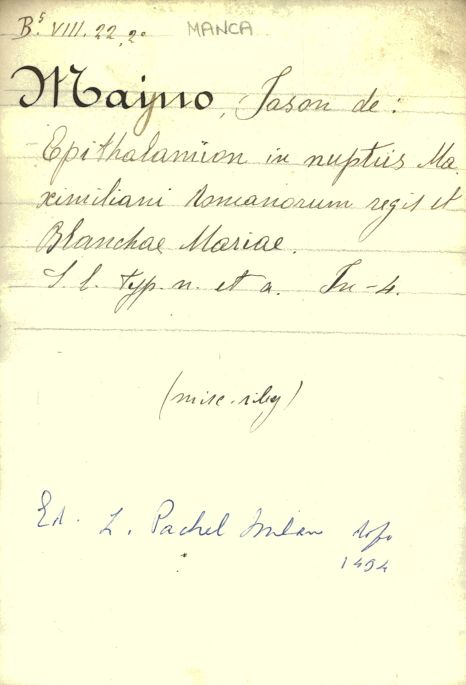 B.⁵ VIII. 22, 2º MANCA
Mayno, Jason de:
Epithalamion in nuptiis Ma
ximiliani Romanorum regis et
Blanchae Mariae.
S. l. typ. n. et a. In-4.
(misc. rileg)
Ed. L. Pachel Milan dopo
1494